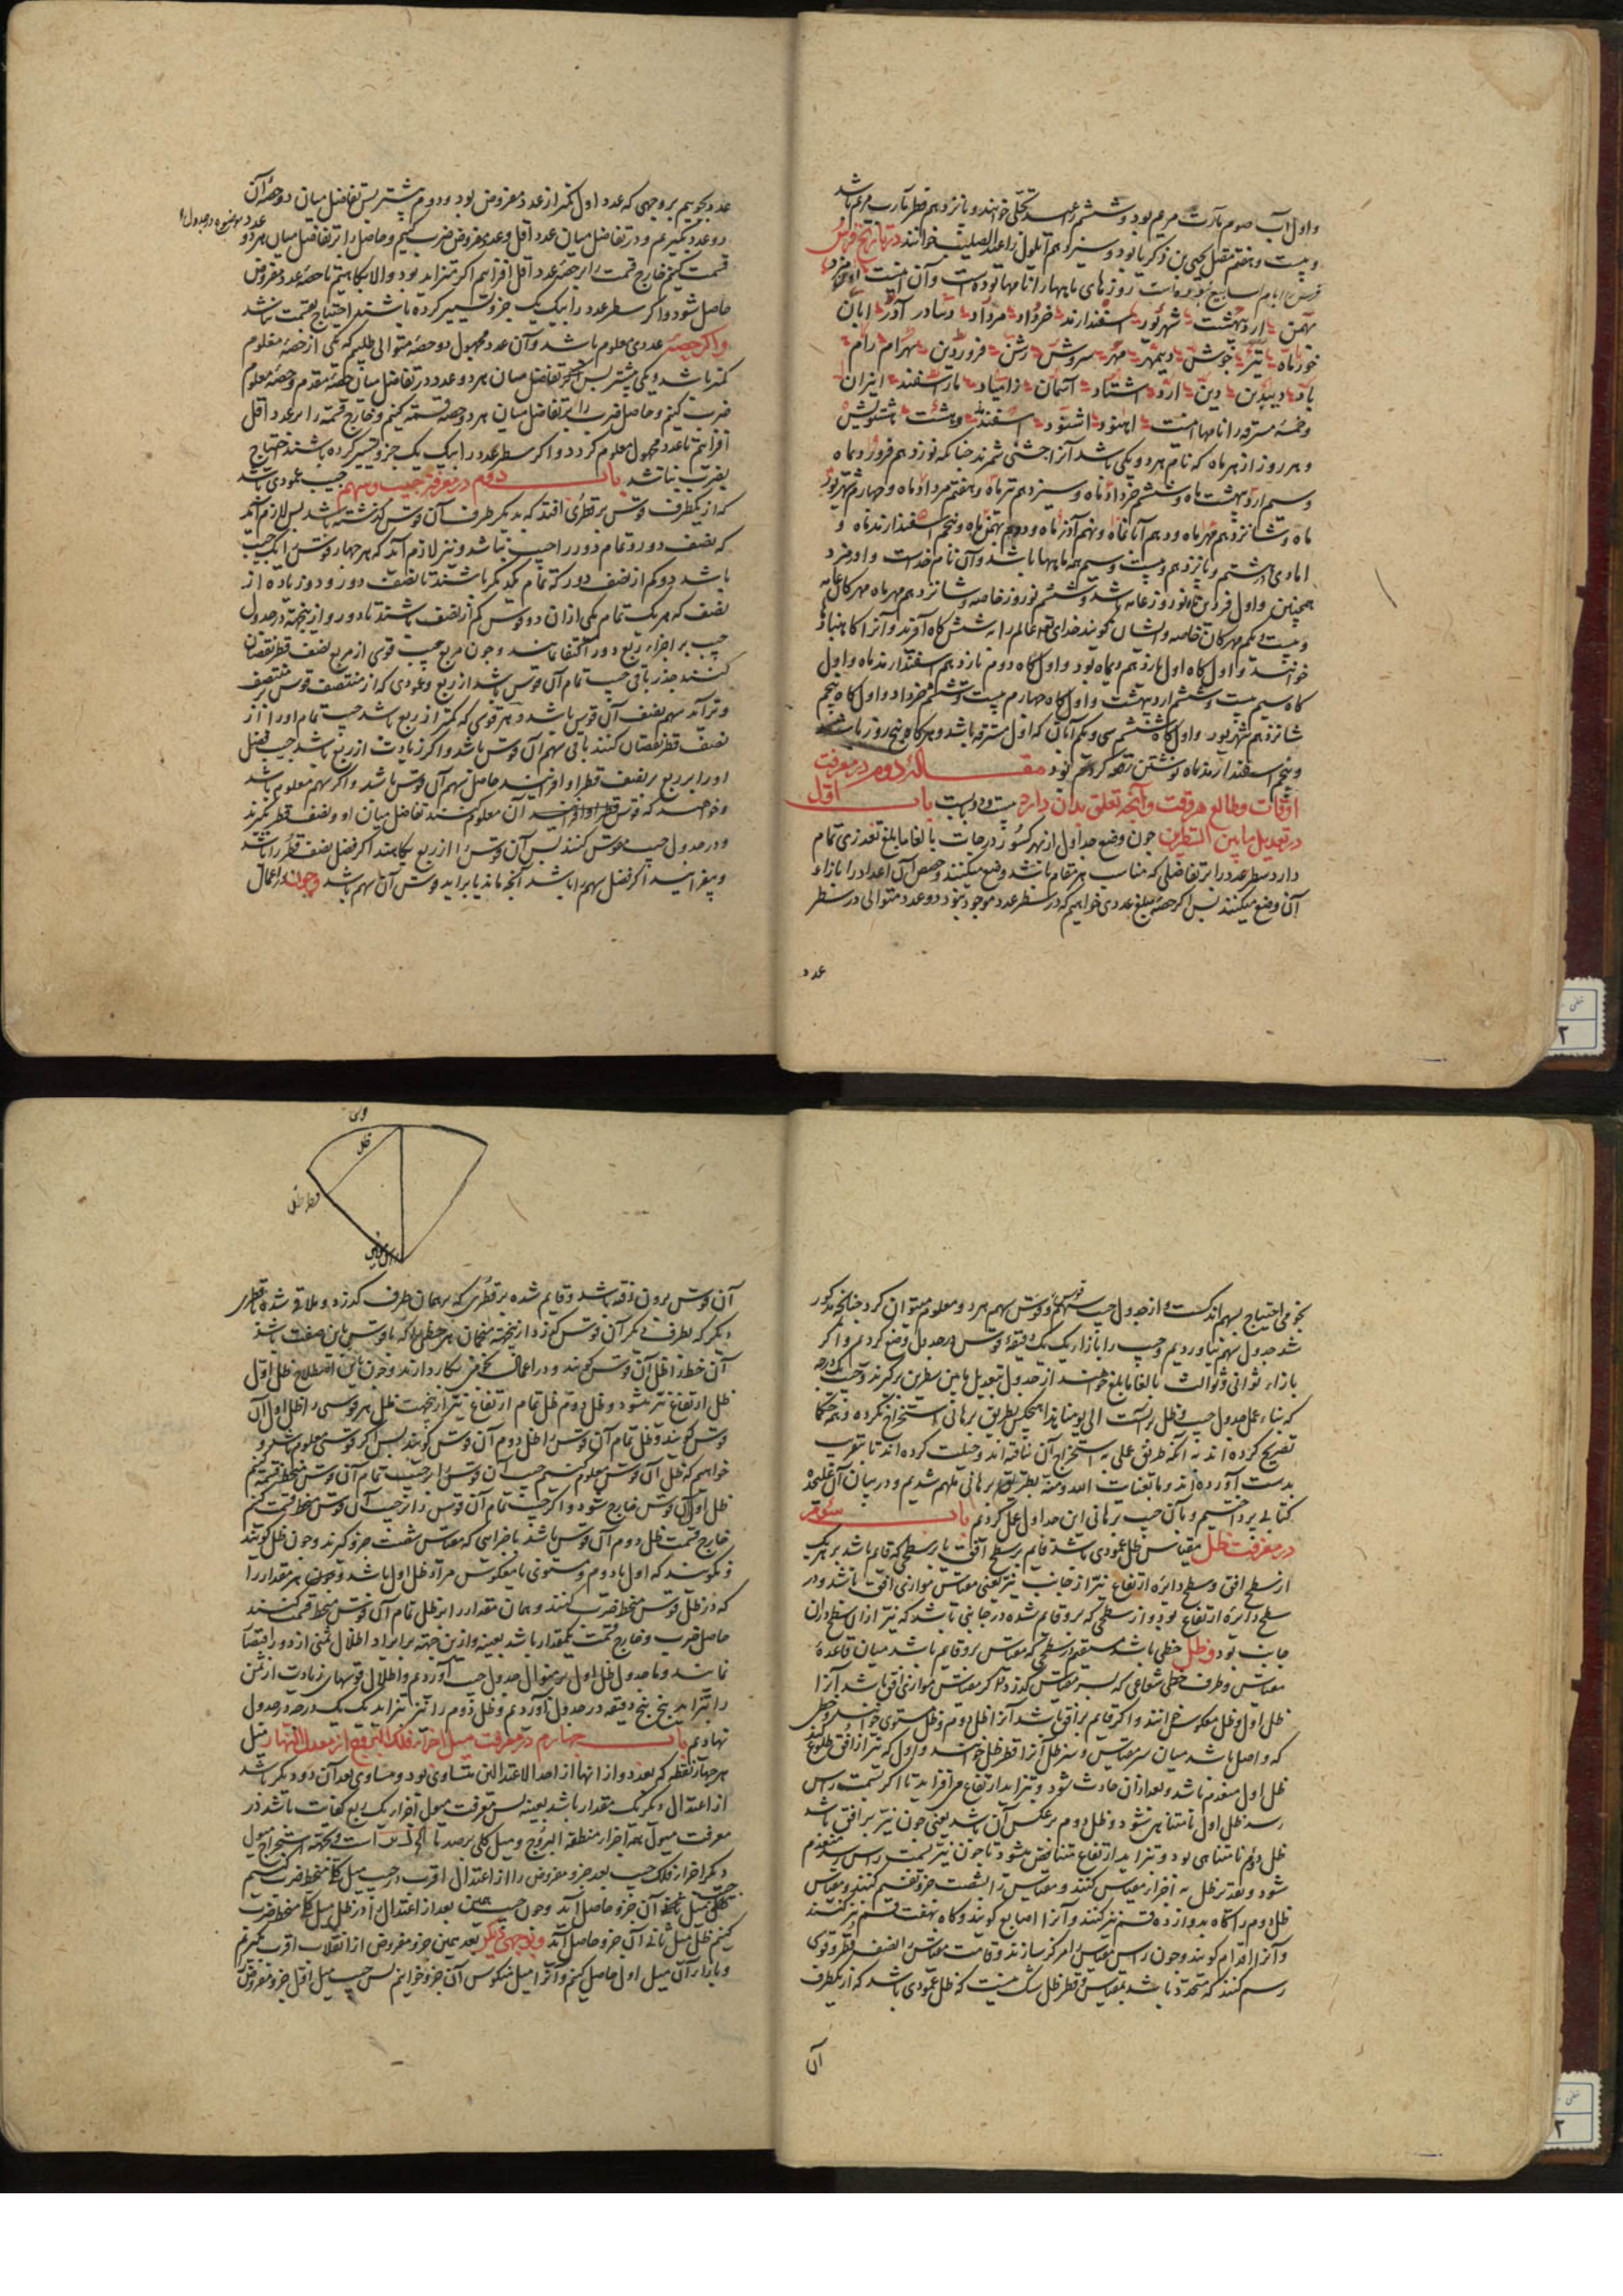 واول آب صوم مارت مریم بود و ششم عید تجلی خوانند و پانزدهم فطر مارت مریم باشد
و بیست و هفتم مقتل یحیی بن زکریا بود و سیزدهم ایلول را عید الصلیب خوانند در تاریخ فرس
فرس را ایام اسابیع نبوده است روزهای ماهها را نامها بوده است و آن اینست اورمزد
بهمن اردیبهشت شهریور اسفندارمذ خرداد مرداد دیبادر آذر ابان
خور ماه تیر جوش دیبمهر مهر سروش رشن فروردین بهرام رام
باد دیبدین دین ارد اشتاد آسمان زامیاد مارسفند انیران
وخمسهٔ مسترقه را نامها اینست اهنود اشتود اسفندمد وهشت هشتویش
و هر روز از هر ماه که نام هر دو یکی باشد آنرا جشنی شمرند چنانکه نوزدهم فروردماه
وسیم اردیبهشت ماه و ششم خرداد ماه و سیزدهم تیرماه و هفتم مرداد ماه و چهارم شهریور
ماه و شانزدهم مهرماه و دهم آبانماه و نهم آذرماه و دوم بهمن ماه و پنجم اسفندارمذماه و
اما دی هشتم و پانزدهم و بیست و سیم همه ماهها باشد و آن نام خداست و اورمزد
همچنین واول فروردین ماه نوروز عامه باشد و ششم نوروز خاصه و شانزدهم مهرماه مهرکان عامه
و بیست یکم مهرکان خاصه و ایشان گویند خدای تعالی عالم را به شش گاه آفرید و آنرا گاهنبارها
خوانند و اول گاه اول یازدهم دیماه بود و اول گاه دوم یازدهم اسفندارمذماه و اول
گاه سیم بیست و ششم اردیبهشت و اول گاه چهارم بیست و ششم خرداد و اول گاه پنجم
شانزدهم شهریور و اول گاه ششم سی و یکم آبان که اول مسترقه باشد و هر گاه پنج روز باشد
و پنجم اسفندارمذماه نوشتن رقعه کژدم بود مقالهٔ دوم در معرفت
اوقات و طالع هر وقت و آنچه تعلق بدان دارد بیست و دو بابست باب اول
در تعدیل مابین السطرین چون وضع جداول از بهر کسور درجات بالغا ما بلغ تعذری تمام
دارد سطر عدد را بر تفاضلی که مناسب هر مقام باشد وضع میکنند و حصص آن اعداد را بازاء
آن وضع میکنند پس اگر حصهٔ مبلغ عددی خواهیم که در سطر عدد موجود نبود دو عدد متوالی در سطر
عدد
عدد بجوییم بر وجهی که عدد اول کمتر از عدد مفروض بود و دوم بیشتر پس تفاضل میان دو حصهٔ آن
دو عدد بگیریم و در تفاضل میان عدد اقل و عدد مفروض ضرب کنیم و حاصل را بر تفاضل میان هر دو
عدد موضوعه در جدول
قسمت کنیم خارج قسمت را بر حصهٔ عدد اقل افزاییم اگر متزاید بود و الا بکاهیم تا حصهٔ عدد مفروض
حاصل شود و اگر سطر عدد را بیک یک جزو تفسیر کرده باشند احتیاج بقسمت نباشد
و اگر حصهٔ عددی معلوم باشد و آن عدد مجهول دو حصهٔ متوالی طلبیم که یکی از حصهٔ معلوم
کمتر باشد و یکی بیشتر پس تفاضل میان هر دو عدد در تفاضل میان حصهٔ مقدم و حصهٔ معلوم
ضرب کنیم و حاصل ضرب را بر تفاضل میان هر دو حصه قسمة کنیم و خارج قسمة را بر عدد اقل
افزاییم تا عدد مجهول معلوم گردد و اگر سطر عدد را بیک یک جزو تفسیر کرده باشند احتیاج
بضرب نباشد باب دوم در معرفت جیب و سهم جیب عمودی باشد
که از یکطرف قوس بر قطری افتد که بدیگر طرف آن قوس گذشته باشد پس لازم آید
که نصف دور و تمام دور را جیب نباشد و نیز لازم آید که هر چهار قوس را یک جیب
باشد دو کم از نصف دور که تمام یکدیگر باشند تا نصف دور و دو زیاده از
نصف که هر یک تمام یکی از آن دو قوس کم از نصف باشند تا دور و از ینجهة در جدول
جیب بر اجزاء ربع دور اکتفا نمایند و چون مربع جیب قوسی از مربع نصف قطر نقصان
کنند جذر باقی جیب تمام آن قوس باشد از ربع و عمودی که از منتصف قوس بر منتصف
وتر آید سهم نصف آن قوس باشد و هر قوسی که کمتر از ربع باشد جیب تمام او را از
نصف قطر نقصان کنند باقی سهم آن قوس باشد و اگر زیادت از ربع باشد جیب فضل
او را بر ربع بر نصف قطر او افزایند حاصل سهم آن قوس باشد و اگر سهم معلوم باشد
و خواهند که قوس آن معلوم کنند تفاضل میان او و نصف قطر بگیرند
و در جدول جیب مقوس کنند پس آن قوس را از ربع بکاهند اگر فضل نصف قطر را باشد
و بیفزایند اگر فضل سهم را باشد آنچه ماند یا برآید قوس آن سهم باشد و چون در اعمال
نجومی احتیاج بسهم اندکست و از جدول جیب سهم و قوس سهم هر دو معلوم میتوان کرد چنانچه مذکور
شد جدول سهم نیاوردیم و جیب را بازاء یک یک دقیقهٔ قوس در جدول وضع کردیم و اگر
بازاء ثوانی و ثوالث بالغا ما بلغ خواهند از جدول تعدیل مابین سطرین برگیرند و جیب یک درجه
که بناء عمل جدول جیب و ظل بر آنست الی یومنا هذا هیچکس بطریق برهانی استخراج نکرده و همه حکما
تصریح کرده اند به آنکه طریق عملی به استخراج آن نیافته اند و حیلت کرده اند تا بتقریب
بدست آورده اند و ما بعنایت الله و منه بطریق برهانی ملهم شدیم و در بیان آن علیحده
کتابی پرداختیم و بآن جیب برهانی این جداول عمل کردیم باب سوم
در معرفت ظل مقیاس ظل عمودی باشد قایم بر سطح افق یا بر سطحی که قایم باشد بر هر یک
از سطح افق و سطح دایرهٔ ارتفاع نیر از جانب نیر یعنی مقیاس موازی افق باشد و در
سطح دایرهٔ ارتفاع بود و از سطحی که بر و قایم شده در جانبی باشد که نیر از آن سطح در آن
جانب بود و ظل خطی باشد مستقیم در سطحی که مقیاس بر و قایم باشد میان قاعدهٔ
مقیاس و طرف خطی شعاعی که بسر مقیاس گذرد و اگر مقیاس موازی افق باشد آنرا
ظل اول و ظل معکوس خوانند و اگر قایم بر افق باشد آنرا ظل دوم و ظل مستوی خوانند و خطی
که واصل باشد میان سر مقیاس و سر ظل آنرا قطر ظل خوانند و اول که نیر از افق طلوع کند
ظل اول منعدم باشد و بعد از آن حادث شود و بتزاید ارتفاع می افزاید تا اگر بسمت راس
رسد ظل اول نامتناهی شود و ظل دوم بر عکس آن باشد یعنی چون نیر بر افق باشد
ظل دوم نامتناهی بود و بتزاید ارتفاع متناقض میشود تا چون نیر بسمت راس رسد منعدم
شود و تقدیر ظل به اجزاء مقیاس کنند و مقیاس را بشصت جزو تقسیم کنند و مقیاس
ظل دوم را گاه بدوازده قسم نیز کنند و آنرا اصابع گویند و گاه بهفت قسم نیز کنند
و آنرا اقدام گویند و چون راس مقیاس را مرکز سازند و قامت مقیاس را نصف قطر و قوسی
رسم کنند که متحدد باشد بمقیاس و قطر ظل شک نیست که ظل عمودی باشد که از یکطرف
آن
قوس
ظل
قطر ظل
آن قوس بیرون رفته باشد و قایم شده بر قطری که بهمان طرف گذرد و ملاقی شده با قطری
دیگر که بطرف دیگر آن قوس گذرد از ینجهته منجمان هر خطی را که با قوس باین صفت باشد
آن خط را ظل آن قوس گویند و در اعمال نجومی بکار دارند و چون باین اصطلاح ظل اول
ظل ارتفاع نیر میشود و ظل دوم ظل تمام ارتفاع نیز از ینجهت ظل هر قوسی را ظل اول آن
قوس گویند و ظل تمام آن قوس را ظل دوم آن قوس گویند پس اگر قوسی معلوم باشد و
خواهیم که ظل آن قوس معلوم کنیم جیب آن قوس را بر جیب تمام آن قوس منحط قسمة کنیم
ظل اول آن قوس خارج شود و اگر جیب تمام آن قوس را بر جیب آن قوس منحط قسمت کنیم
خارج قسمت ظل دوم آن قوس باشد باجزایی که مقیاس شصت جزو گیرند و چون ظل گویند
و نگویند که اول یا دوم و مستوی یا معکوس مراد ظل اول باشد و چون هر مقدار را
که در ظل قوس منحط ضرب کنند و همان مقدار را بر ظل تمام آن قوس منحط قسمت کنند
حاصل ضرب و خارج قسمت یکمقدار باشد بعینه و ازین جهته بر ایراد اظلال ثمنی از دور اقتصار
نمایند و ما جدول ظل اول بر منوال جدول جیب آوردیم و اظلال قوسهای زیادت از ثمن
را بتزاید پنج پنج دقیقه در جدول آوردیم و ظل دوم را نیز بتزاید یک یک درجه در جدول
نهادیم باب چهارم در معرفت میل اجزاء فلک البروج از معدل النهار میل
هر چهار نقطه که بعد دو از آنها از احد الاعتدالین متساوی بود و مساوی بعد آن دو دیگر باشد
از اعتدال دیگر یک مقدار باشد بعینه پس معرفت میول اجزاء یک ربع کفایت باشد در
معرفت میول همه اجزاء منطقة البروج و میل کلی برصد ما است و بجهته استخراج میول
دیگر اجزاء فلک جیب بعد جزو مفروض را از اعتدال اقرب در جیب میل کلی منحط ضرب کنیم
جیب میل آن جزو حاصل آید و چون جیب همین بعد از اعتدال را در ظل میل کلی منحط ضرب
کنیم ظل میل ثانی آن جزو حاصل آید و بوجهی دیگر بعد همین جزو مفروض از انقلاب اقرب بگیریم
و بازاء آن میل اول حاصل کنیم و آنرا میل منکوس آن جزو خوانیم پس جیب میل اول جزو مفروض